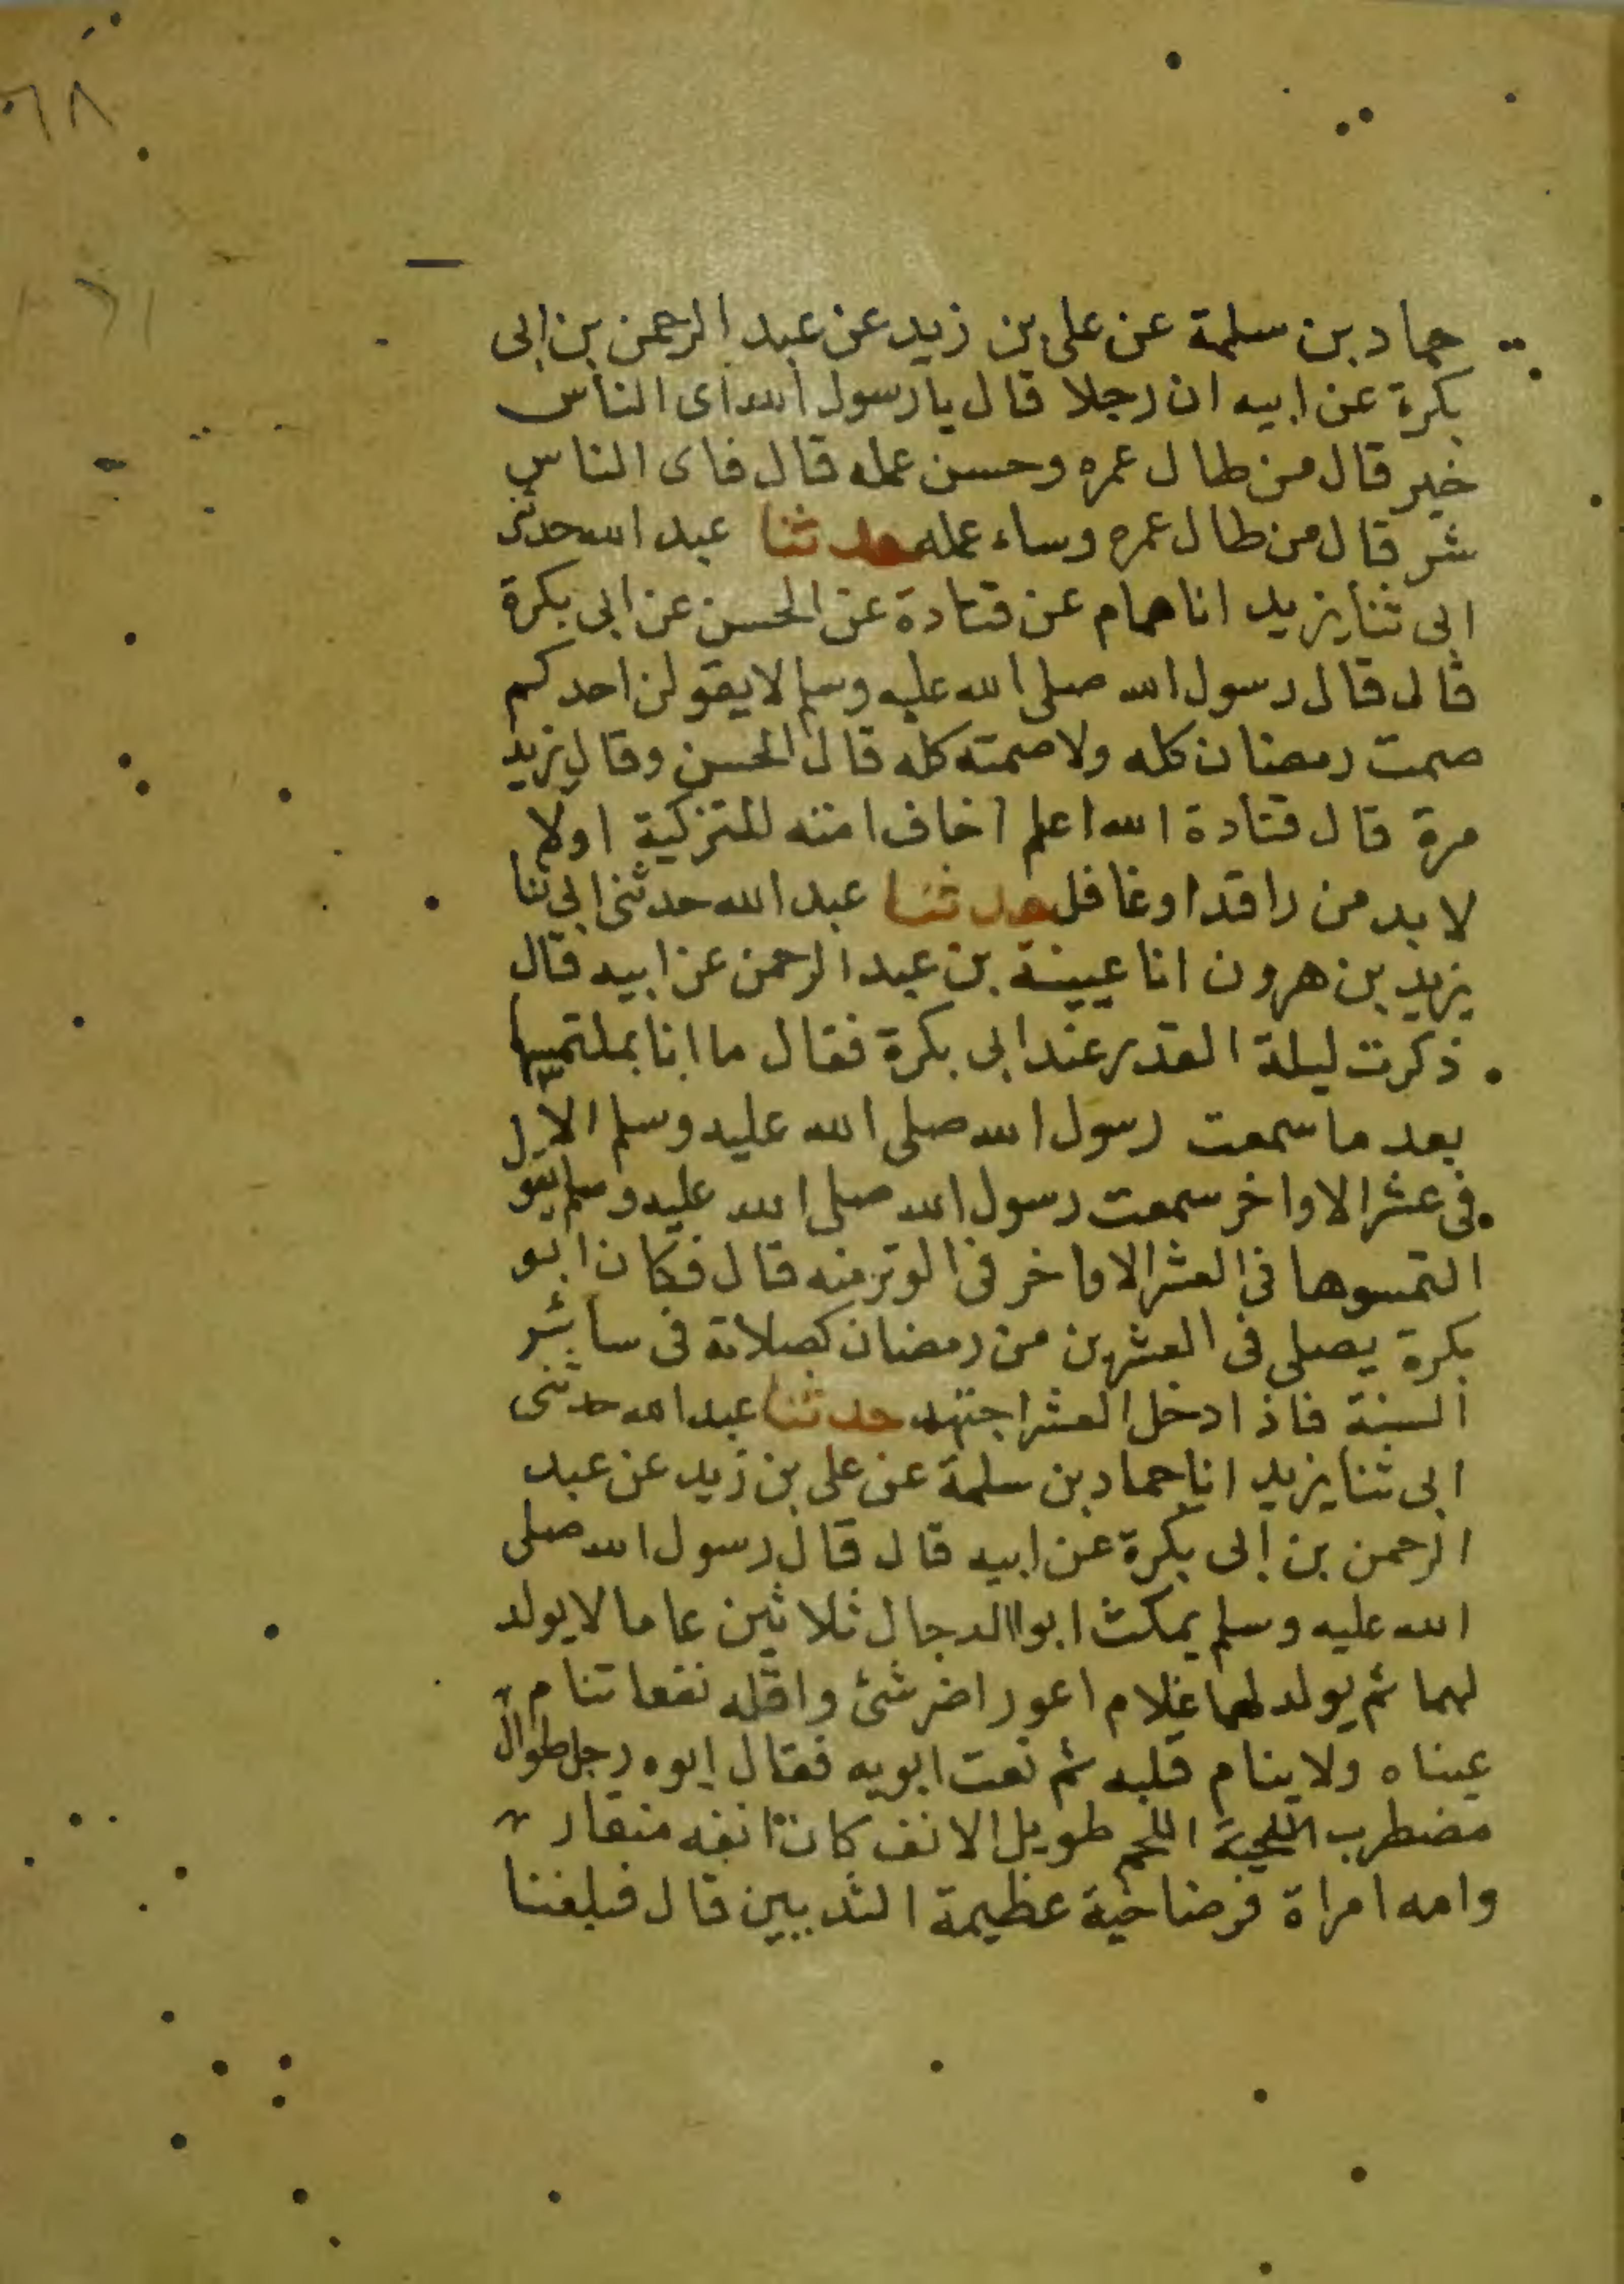 ٦٨
حماد بن سلمة عن على بن زيد عن عبد الرحمن بن ابى
بكرة عن ابيه ان رجلا قال يا رسول الله اى الناس
خير قال من طال عمره وحسن عمله قال فاى الناس
شر قال من طال عمره وساء عمله حدثنا عبد الله حدثنى
ابى ثنا يزيد انا همام عن قتادة عن الحسن عن ابى بكرة
قال قال رسول الله صلى الله عليه وسلم لا يقولن احدكم
صمت رمضان كله ولا صمته كله قال الحسن وقال يزيد
مرة قال قتادة الله اعلم اخاف امته للتزكية اولا
لا بد من راقد او غافل حدثنا عبد الله حدثنى ابي ثنا
يزيد بن هرون انا عيينة بن عبد الرحمن عن ابيه قال
ذكرت ليلة القدر عند ابى بكرة فقال ما انا بملتمسها
بعد ما سمعت رسول الله صلى الله عليه وسلم الا
فى عشر الاواخر سمعت رسول الله صلى الله عليه وسلم يقول
التمسوها فى العشر الاواخر فى الوتر منه قال فكان ابو
بكرة يصلى فى العشرين من رمضان كصلاته فى سائر
السنة فاذا دخل العشر اجتهد حدثنا عبد الله حدثنى
ابى ثنا يزيد انا حماد بن سلمة عن على بن زيد عن عبد
الرحمن بن ابى بكرة عن ابيه قال قال رسول الله صلى
الله عليه وسلم يمكث ابوا الدجال ثلاثين عاما لا يولد
لهما ثم يولد لهما غلام اعور اضر شئ واقله نفعا تنام
عيناه ولا ينام قلبه ثم نعت ابويه فقال ابوه رجل طوال
مضطرب اللحية اللحم طويل الانف كان انفه منقار
وامه امراة فرضاخية عظيمة الثديين قال فبلغنا